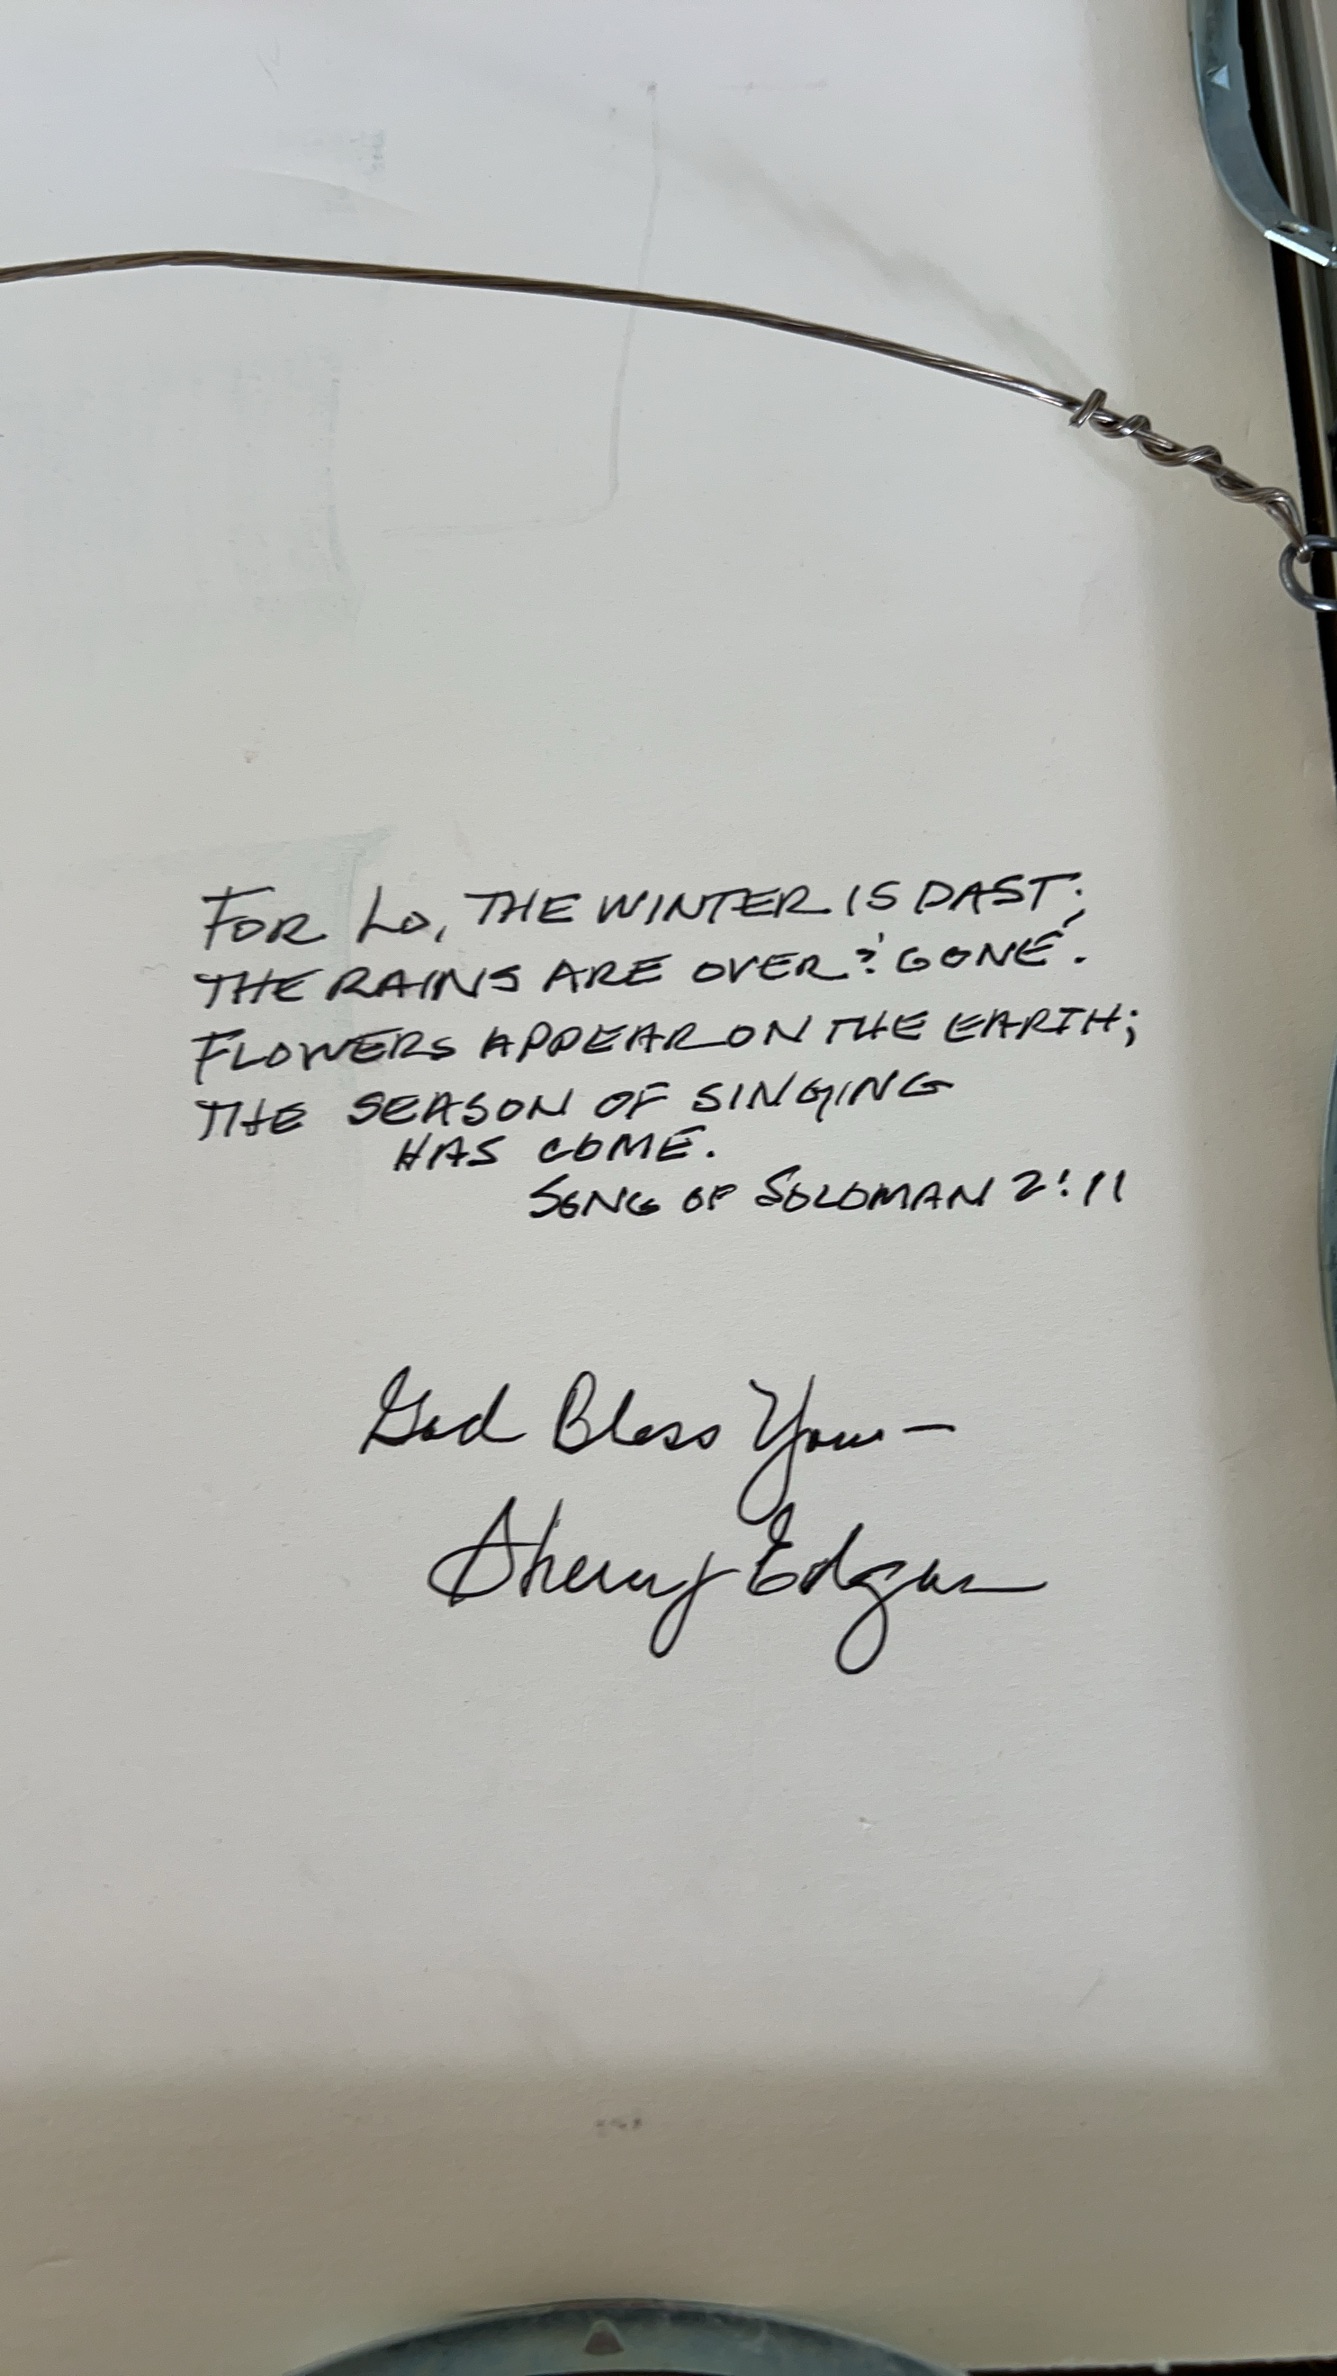 FOR LO, THE WINTER IS PAST;
THE RAINS ARE OVER & GONE.
FLOWERS APPEAR ON THE EARTH;
THE SEASON OF SINGING
HAS COME.
SONG OF SOLOMAN 2:11
God Bless You —
Sherry Edgar